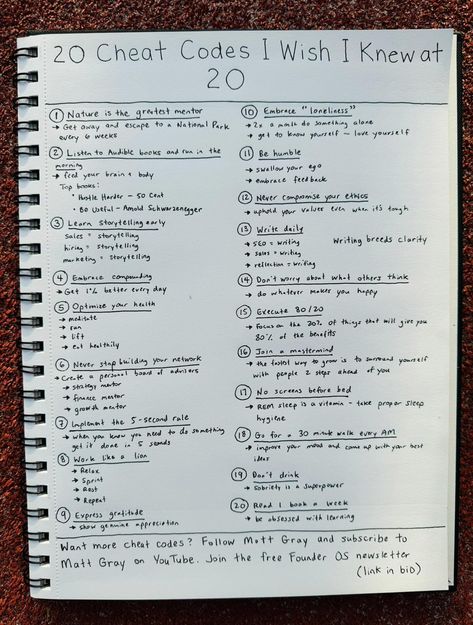 20 Cheat Codes I Wish I Knew at
20
① Nature is the greatest mentor
→ Get away and escape to a National Park
every 6 weeks
② Listen to Audible books and run in the
morning
→ feed your brain + body
Top books:
• Hustle Harder - 50 Cent
• Be Useful - Arnold Schwarzenegger
③ Learn storytelling early
sales = storytelling
hiring = storytelling
marketing = storytelling
④ Embrace compounding
→ Get 1% better every day
⑤ Optimize your health
→ meditate
→ run
→ lift
→ eat healthily
⑥ Never stop building your network
→ Create a personal board of advisors
→ strategy mentor
→ finance mentor
→ growth mentor
⑦ Implement the 5-second rule
→ when you know you need to do something
get it done in 5 seconds
⑧ Work like a lion
→ Relax
→ Sprint
→ Rest
→ Repeat
⑨ Express gratitude
→ show genuine appreciation
⑩ Embrace "loneliness"
→ 2x a month do something alone
→ get to know yourself ~ love yourself
⑪ Be humble
→ swallow your ego
→ embrace feedback
⑫ Never compromise your ethics
→ uphold your values even when it's tough
⑬ Write daily
→ SEO = writing
→ sales = writing
→ reflection = writing
Writing breeds clarity
⑭ Don't worry about what others think
→ do whatever makes you happy
⑮ Execute 80/20
→ focus on the 20% of things that will give you
80% of the benefits
⑯ Join a mastermind
→ the fastest way to grow is to surround yourself
with people 2 steps ahead of you
⑰ No screens before bed
→ REM sleep is a vitamin - take proper sleep
hygiene
⑱ Go for a 30 minute walk every AM
→ improve your mood and come up with your best
ideas
⑲ Don't drink
→ Sobriety is a superpower
⑳ Read 1 book a week
→ be obsessed with learning
Want more cheat codes? Follow Matt Gray and subscribe to
Matt Gray on YouTube. Join the free Founder OS newsletter
(link in bio)